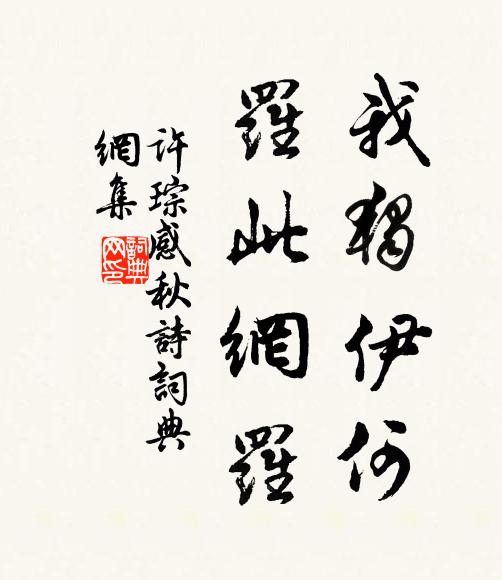 我獨伊何
羅此網羅
許琮感秋詩詞典
網集
詞典网印